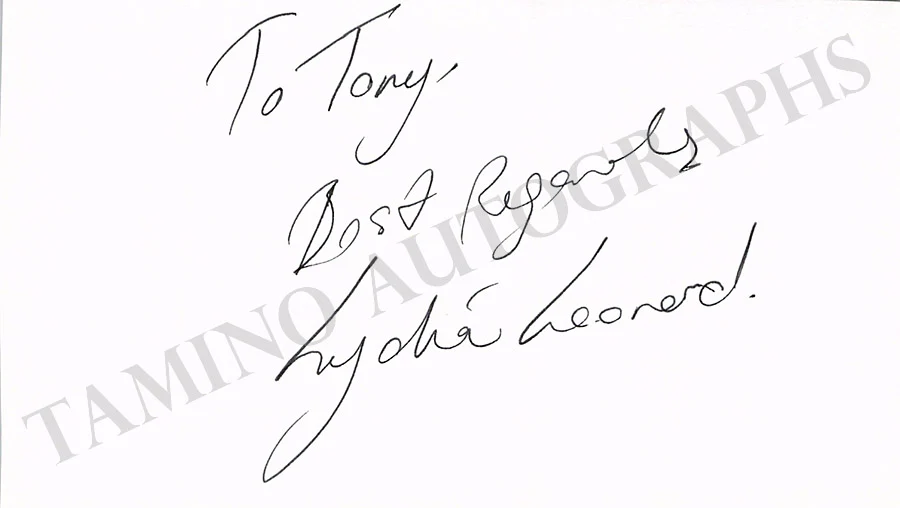 To Tony,
Best Regards
Lydia Leonard.
TAMINO AUTOGRAPHS